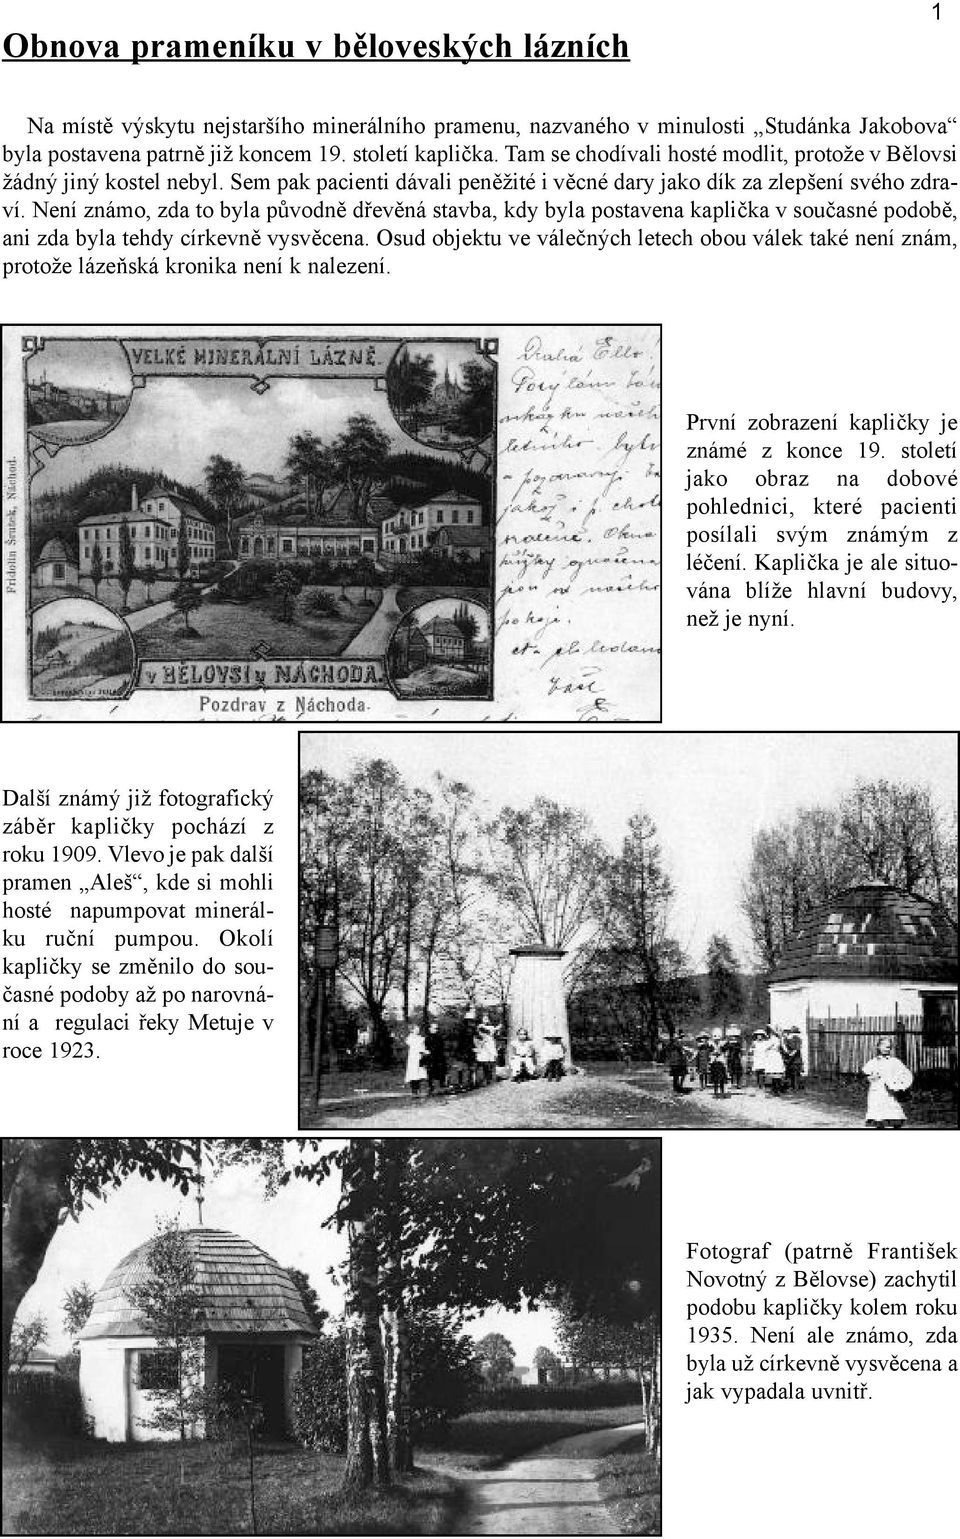 1
Obnova prameníku v běloveských lázních
Na místě výskytu nejstaršího minerálního pramenu, nazvaného v minulosti „Studánka Jakobova“
byla postavena patrně již koncem 19. století kaplička. Tam se chodívali hosté modlit, protože v Bělovsi
žádný jiný kostel nebyl. Sem pak pacienti dávali peněžité i věcné dary jako dík za zlepšení svého zdra-
ví. Není známo, zda to byla původně dřevěná stavba, kdy byla postavena kaplička v současné podobě,
ani zda byla tehdy církevně vysvěcena. Osud objektu ve válečných letech obou válek také není znám,
protože lázeňská kronika není k nalezení.
VELKÉ MINERÁLNÍ LÁZNĚ.
Fridolin Srutek, Náchod.
v BĚLOVSI u NÁCHODA.
Pozdrav z Náchoda.
Drahá Ello!
První zobrazení kapličky je
známé z konce 19. století
jako obraz na dobové
pohlednici, které pacienti
posílali svým známým z
léčení. Kaplička je ale situo-
vána blíže hlavní budovy,
než je nyní.
Další známý již fotografický
záběr kapličky pochází z
roku 1909. Vlevo je pak další
pramen „Aleš“, kde si mohli
hosté napumpovat minerál-
ku ruční pumpou. Okolí
kapličky se změnilo do sou-
časné podoby až po narovná-
ní a regulaci řeky Metuje v
roce 1923.
Fotograf (patrně František
Novotný z Bělovse) zachytil
podobu kapličky kolem roku
1935. Není ale známo, zda
byla už církevně vysvěcena a
jak vypadala uvnitř.